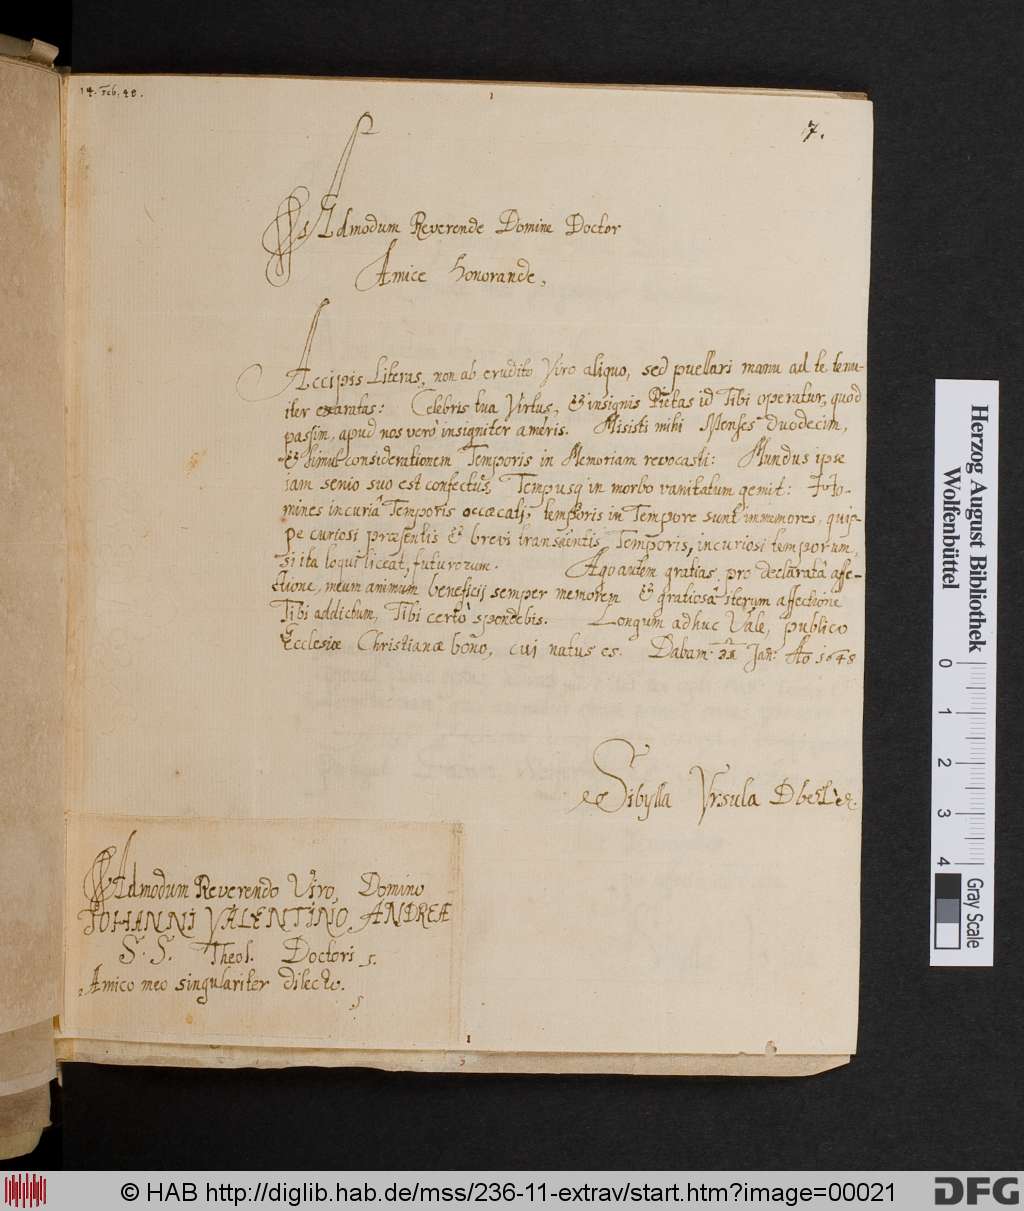 14. Feb. 48.
7.
Admodum Reverende Domine Doctor
Amice honorande.
Accipis Literas, non ab erudito Viro aliquo, sed puellari manu ad te tenu-
iter exaratas: Celebris tua Virtus, & insignis Pietas id Tibi operatur, quod
passim, apud nos verò insigniter ameris. Misisti mihi Menses duodecim,
& simul considerationem Temporis in Memoriam revocasti: Mundus ipse
iam senio suo est confectus, Tempusq in morbo vanitatum gemit:
mines incuriâ Temporis occæcati, temporis in Tempore sunt immemores, quip-
pe curiosi præsentis & brevi transeuntis Temporis, incuriosi temporum,
si ita loqui liceat, futurorum. Ago autem gratias, pro declaratâ affe-
ctione, meum animum beneficij semper memorem & gratiosâ iterum affectione
Tibi addictum, Tibi certò spondebis. Longum adhuc Vale, publico
Ecclesiæ Christianæ bono, cui natus es. Dabam Jan: Ao 1648
Sibylla Ursula
Admodum Reverendo Viro, Domino
JOHANNI VALENTINO ANDREÆ
S. S. Theol. Doctori
Amico meo singulariter dilecto.
Herzog August Bibliothek
Wolfenbüttel
0 1 2 3 4
Gray Scale
© HAB http://diglib.hab.de/mss/236-11-extrav/start.htm?image=00021
DFG